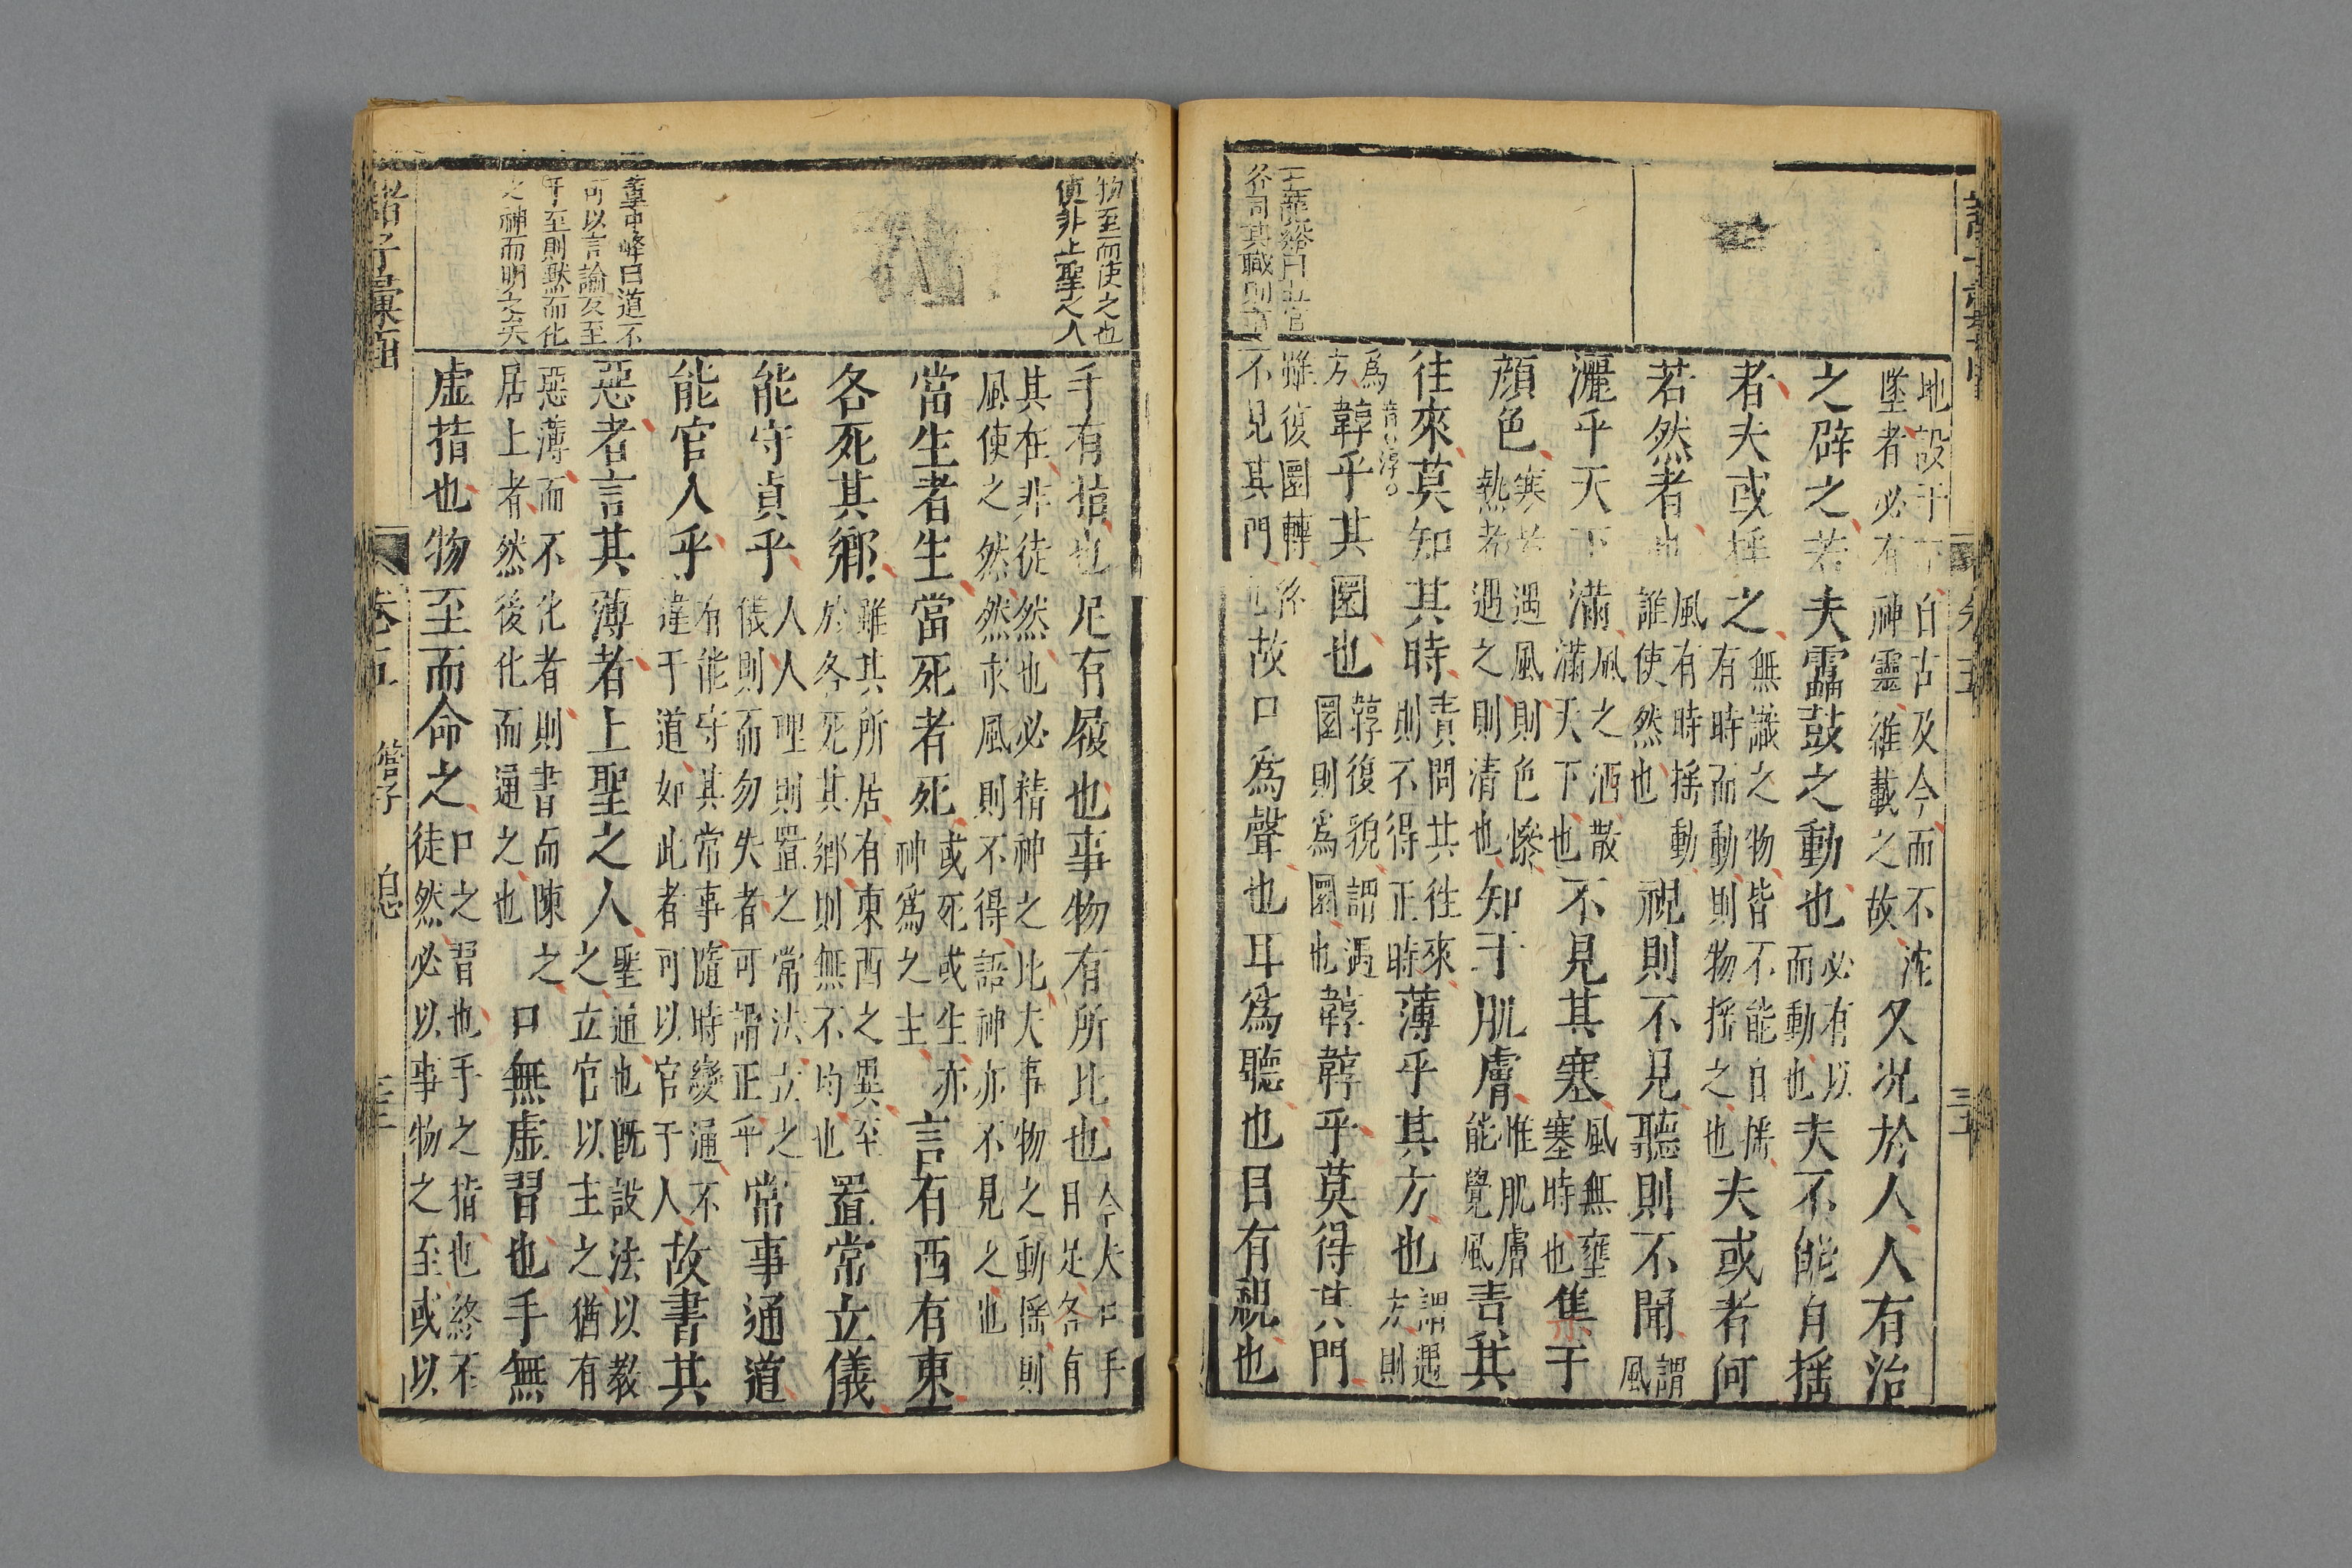 各司其職則
地設于下自古及今而不沈
墜者必有神靈維載之故
久况於人人有治
之辟之若夫靁鼓之動也
必有以
而動也
夫不能自揺
者夫或揺之
無識之物皆不能自揺
有時而動則物揺之也
夫或者何
若然者也
風有時揺動
誰使然也
視則不見聽則不聞
謂
風
灑乎天下滿
風之洒散
滿天下也
不見其塞
風無壅
塞時也
集于
顔色
寒者遇風則色慘
熱者遇之則清也
知于肌膚
惟肌膚
能覺風
責其
往來莫知其時
責問其往來
則不得正時
薄乎其方也
謂遇
方則
爲
方
韕乎其圜也
韕復貌謂遇
圜則爲圜也
韕韕乎莫得其門
雖復圜轉
不見其門
故口爲聲也耳爲聽也目有視也
物至而使之也
使非上聖之人
董中峰曰道不
可以言論及至
乎至則黙而化
之神而明之矣
手有指也足有履也事物有所比也
今夫口手
目足各有
其在非徒然也必精神之比夫事物之動揺則
風使之然然求風則不得語神亦不見之也
當生者生當死者死
或死或生亦
神爲之主
言有西有東
各死其鄉
雖其所居有東西之異至
於各死其鄉則無不均也
置常立儀
能守貞乎
人人理則置之常法立之
儀則而勿失者可謂正乎
常事通道
能官人乎
有能守其常事隨時變通不
違于道如此者可以官于人
故書其
惡者言其薄者上聖之人
聖通也既設法以教
之立官以主之猶有
惡薄而不化者則書而陳之
居上者然後化而通之也
口無虚習也手無
虚指也物至而命之
口之習也手之指也終不
徒然必以事物之至或以
卷五
管子